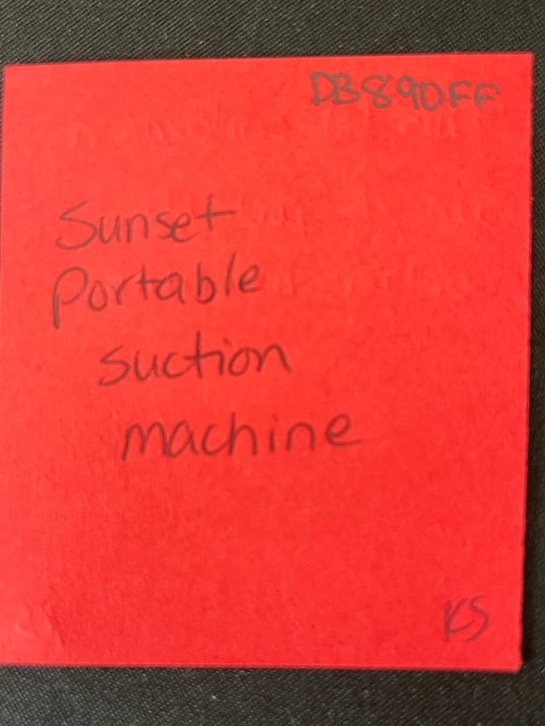 DB890FF
Sunset
Portable
suction
machine
KS